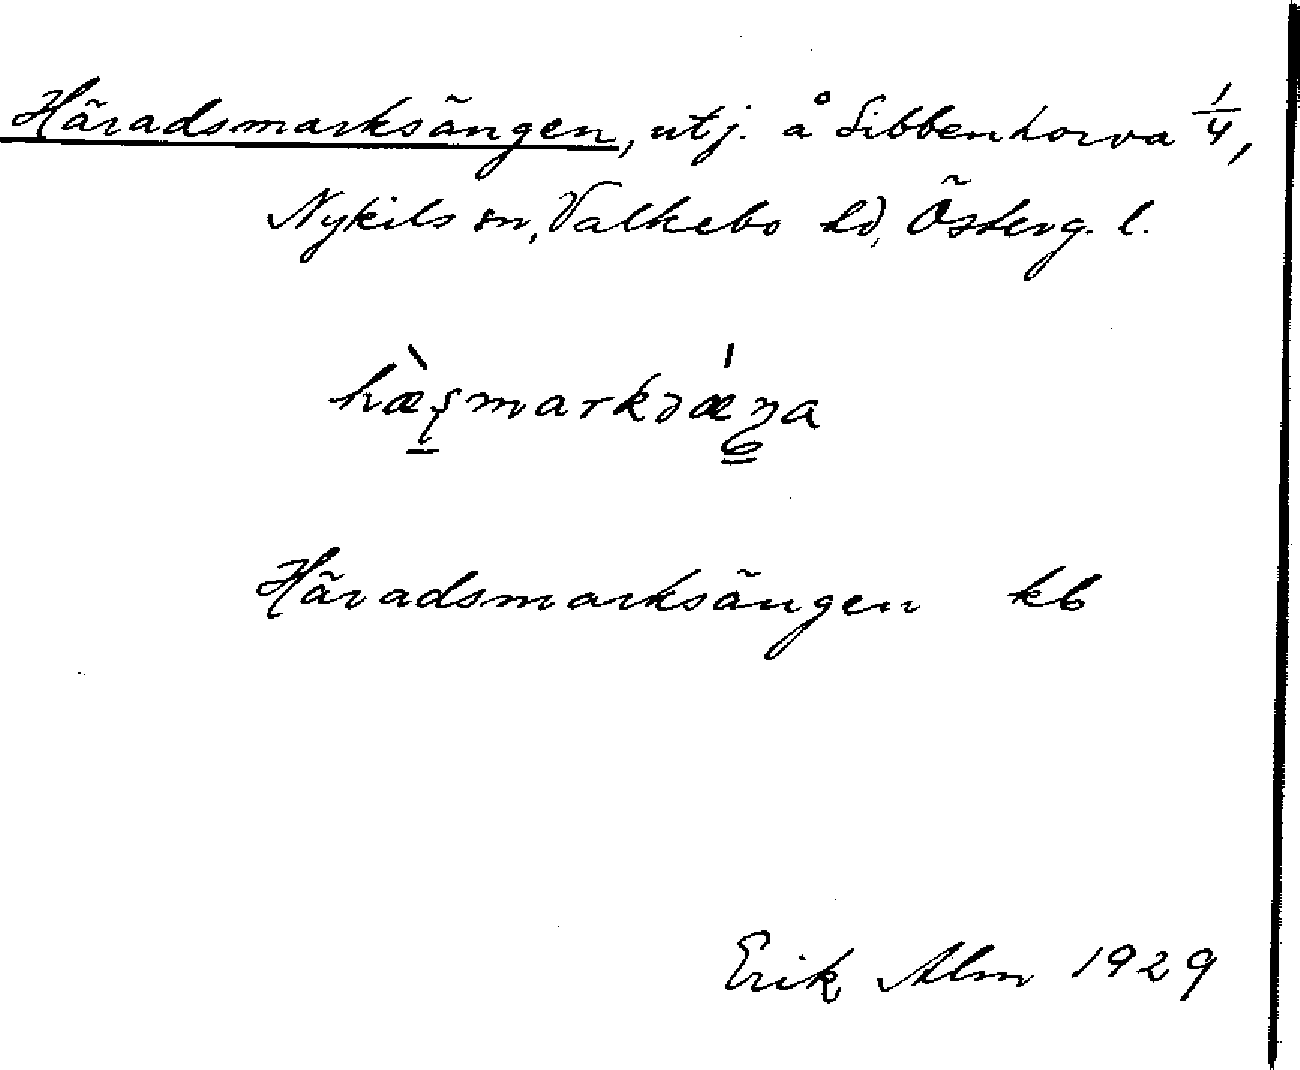 Häradsmarksängen, utj. å Sibbentorva 1/4,
Nykils sn, Valkebo hd, Österg. l.
Häradsmarksängen kb
Erik Alm 1929